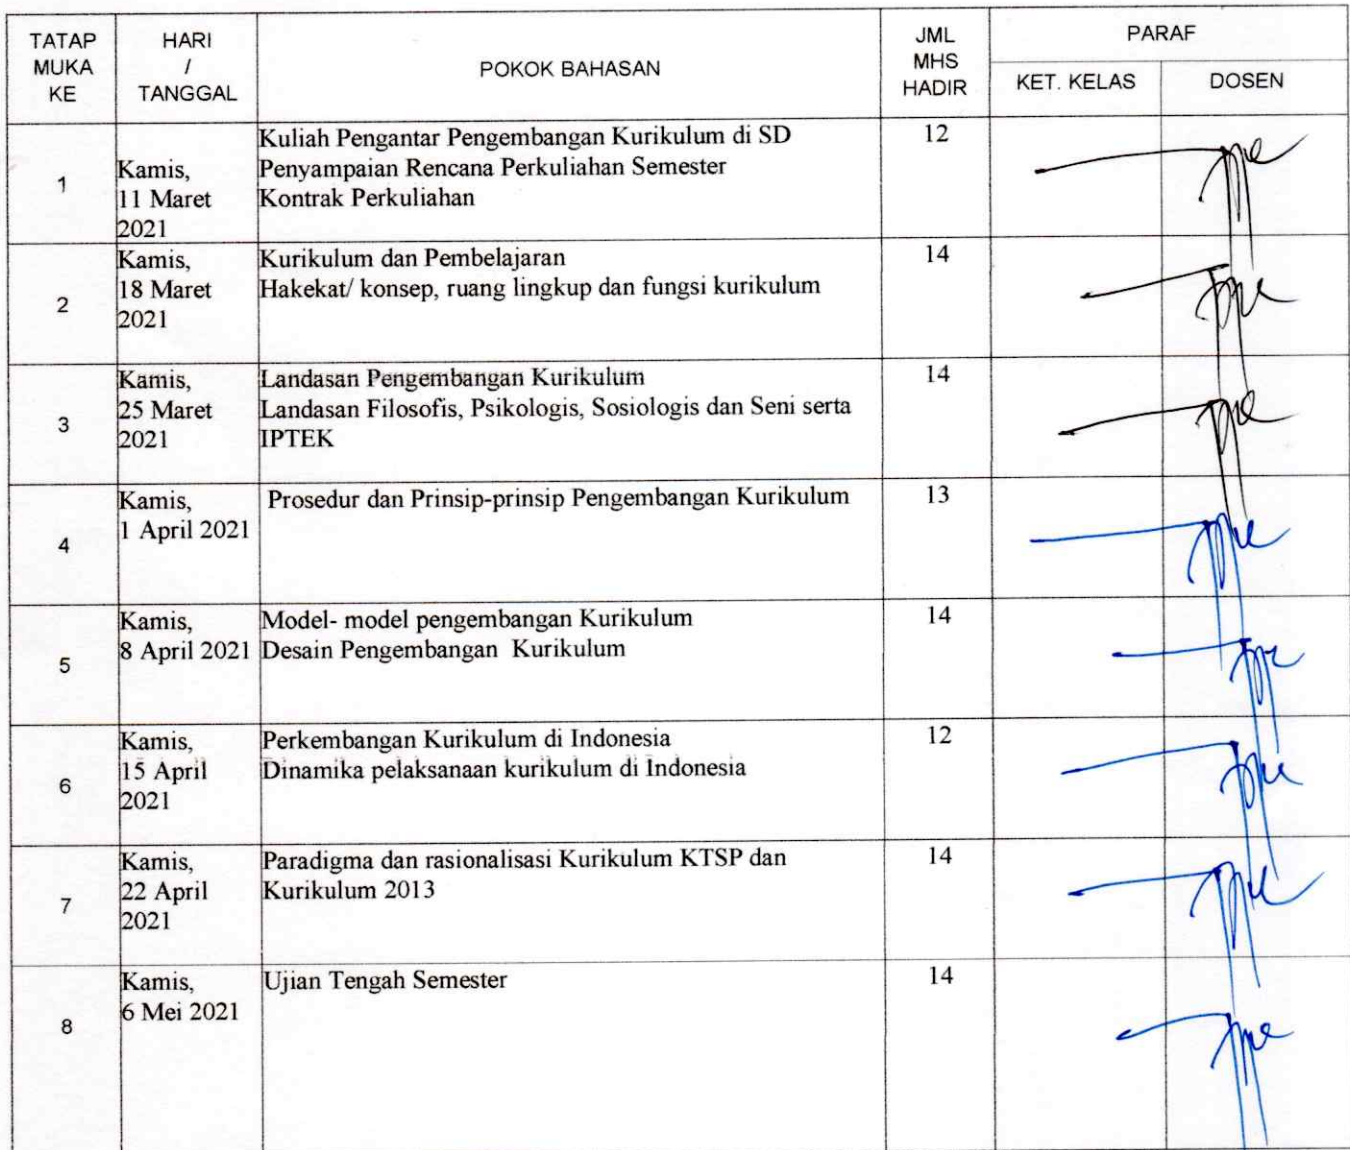 TATAP MUKA KE
HARI / TANGGAL
POKOK BAHASAN
JML MHS HADIR
PARAF
KET. KELAS
DOSEN
1
Kamis,
11 Maret
2021
Kuliah Pengantar Pengembangan Kurikulum di SD
Penyampaian Rencana Perkuliahan Semester
Kontrak Perkuliahan
12
2
Kamis,
18 Maret
2021
Kurikulum dan Pembelajaran
Hakekat/ konsep, ruang lingkup dan fungsi kurikulum
14
3
Kamis,
25 Maret
2021
Landasan Pengembangan Kurikulum
Landasan Filosofis, Psikologis, Sosiologis dan Seni serta
IPTEK
14
4
Kamis,
1 April 2021
Prosedur dan Prinsip-prinsip Pengembangan Kurikulum
13
5
Kamis,
8 April 2021
Model- model pengembangan Kurikulum
Desain Pengembangan Kurikulum
14
6
Kamis,
15 April
2021
Perkembangan Kurikulum di Indonesia
Dinamika pelaksanaan kurikulum di Indonesia
12
7
Kamis,
22 April
2021
Paradigma dan rasionalisasi Kurikulum KTSP dan
Kurikulum 2013
14
8
Kamis,
6 Mei 2021
Ujian Tengah Semester
14